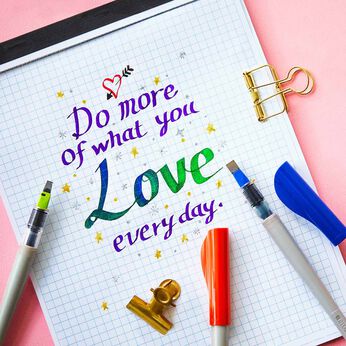 Do more
of what you
Love
every day.